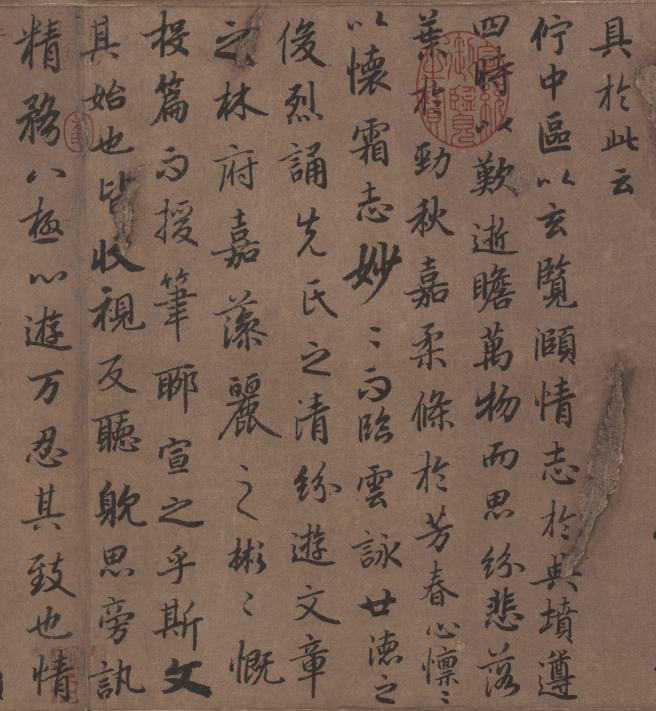 具於此云
佇中區以玄覽頤情志於典墳遵
四時以歎逝瞻萬物而思紛悲落
葉於勁秋嘉柔條於芳春心懍〻
以懷霜志妙〻而臨雲詠世德之
俊烈誦先氏之清紛遊文章
之林府嘉藻麗之彬〻慨
投篇而援筆聊宣之乎斯文
其始也皆收視反聽躭思旁訊
精務八極心遊万忍其致也情